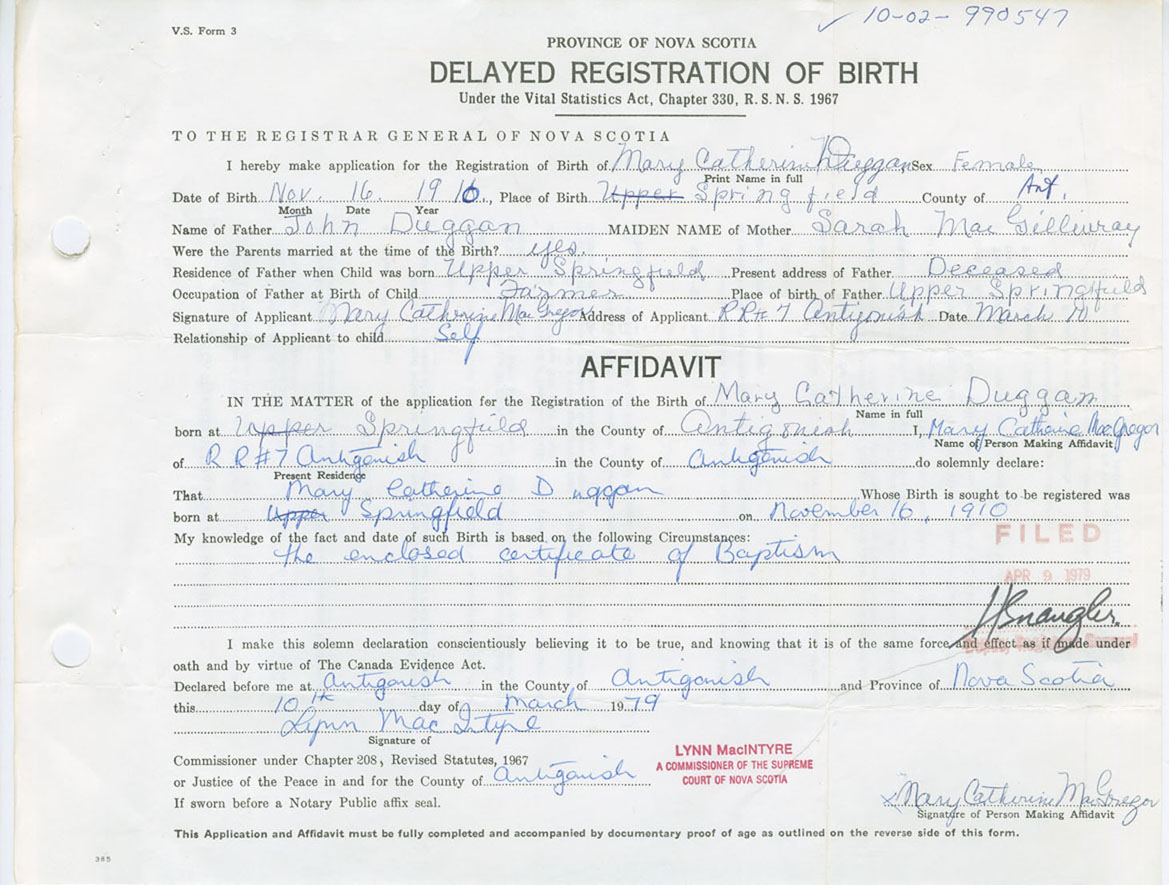 ✓ 10-02-990547
V.S. Form 3
PROVINCE OF NOVA SCOTIA
DELAYED REGISTRATION OF BIRTH
Under the Vital Statistics Act, Chapter 330, R. S. N. S. 1967
TO THE REGISTRAR GENERAL OF NOVA SCOTIA
I hereby make application for the Registration of Birth of Mary Catherine Duggan, Sex Female
Print Name in full
Date of Birth Nov. 16. 1910, Place of Birth Upper Springfield County of Ant.
Month Date Year
Name of Father John Duggan MAIDEN NAME of Mother Sarah MacGillivray
Were the Parents married at the time of the Birth? yes.
Residence of Father when Child was born Upper Springfield Present address of Father Deceased
Occupation of Father at Birth of Child Farmer Place of birth of Father Upper Springfield
Signature of Applicant Mary Catherine MacGregor Address of Applicant RR#7 Antigonish Date March 10
Relationship of Applicant to child Self
AFFIDAVIT
IN THE MATTER of the application for the Registration of the Birth of Mary Catherine Duggan
Name in full
born at Upper Springfield in the County of Antigonish I, Mary Catherine MacGregor
Name of Person Making Affidavit
of RR#7 Antigonish in the County of Antigonish do solemnly declare:
Present Residence
That Mary Catherine Duggan Whose Birth is sought to be registered was
born at Upper Springfield on November 16, 1910
My knowledge of the fact and date of such Birth is based on the following Circumstances:
the enclosed certificate of Baptism
FILED
APR 9 1979
I make this solemn declaration conscientiously believing it to be true, and knowing that it is of the same force and effect as if made under
oath and by virtue of The Canada Evidence Act.
Declared before me at Antigonish in the County of Antigonish and Province of Nova Scotia
this 10th day of March 1979
Lynn MacIntyre
Signature of
Commissioner under Chapter 208, Revised Statutes, 1967
or Justice of the Peace in and for the County of Antigonish
If sworn before a Notary Public affix seal.
LYNN MacINTYRE
A COMMISSIONER OF THE SUPREME
COURT OF NOVA SCOTIA
x Mary Catherine MacGregor
Signature of Person Making Affidavit
This Application and Affidavit must be fully completed and accompanied by documentary proof of age as outlined on the reverse side of this form.
385